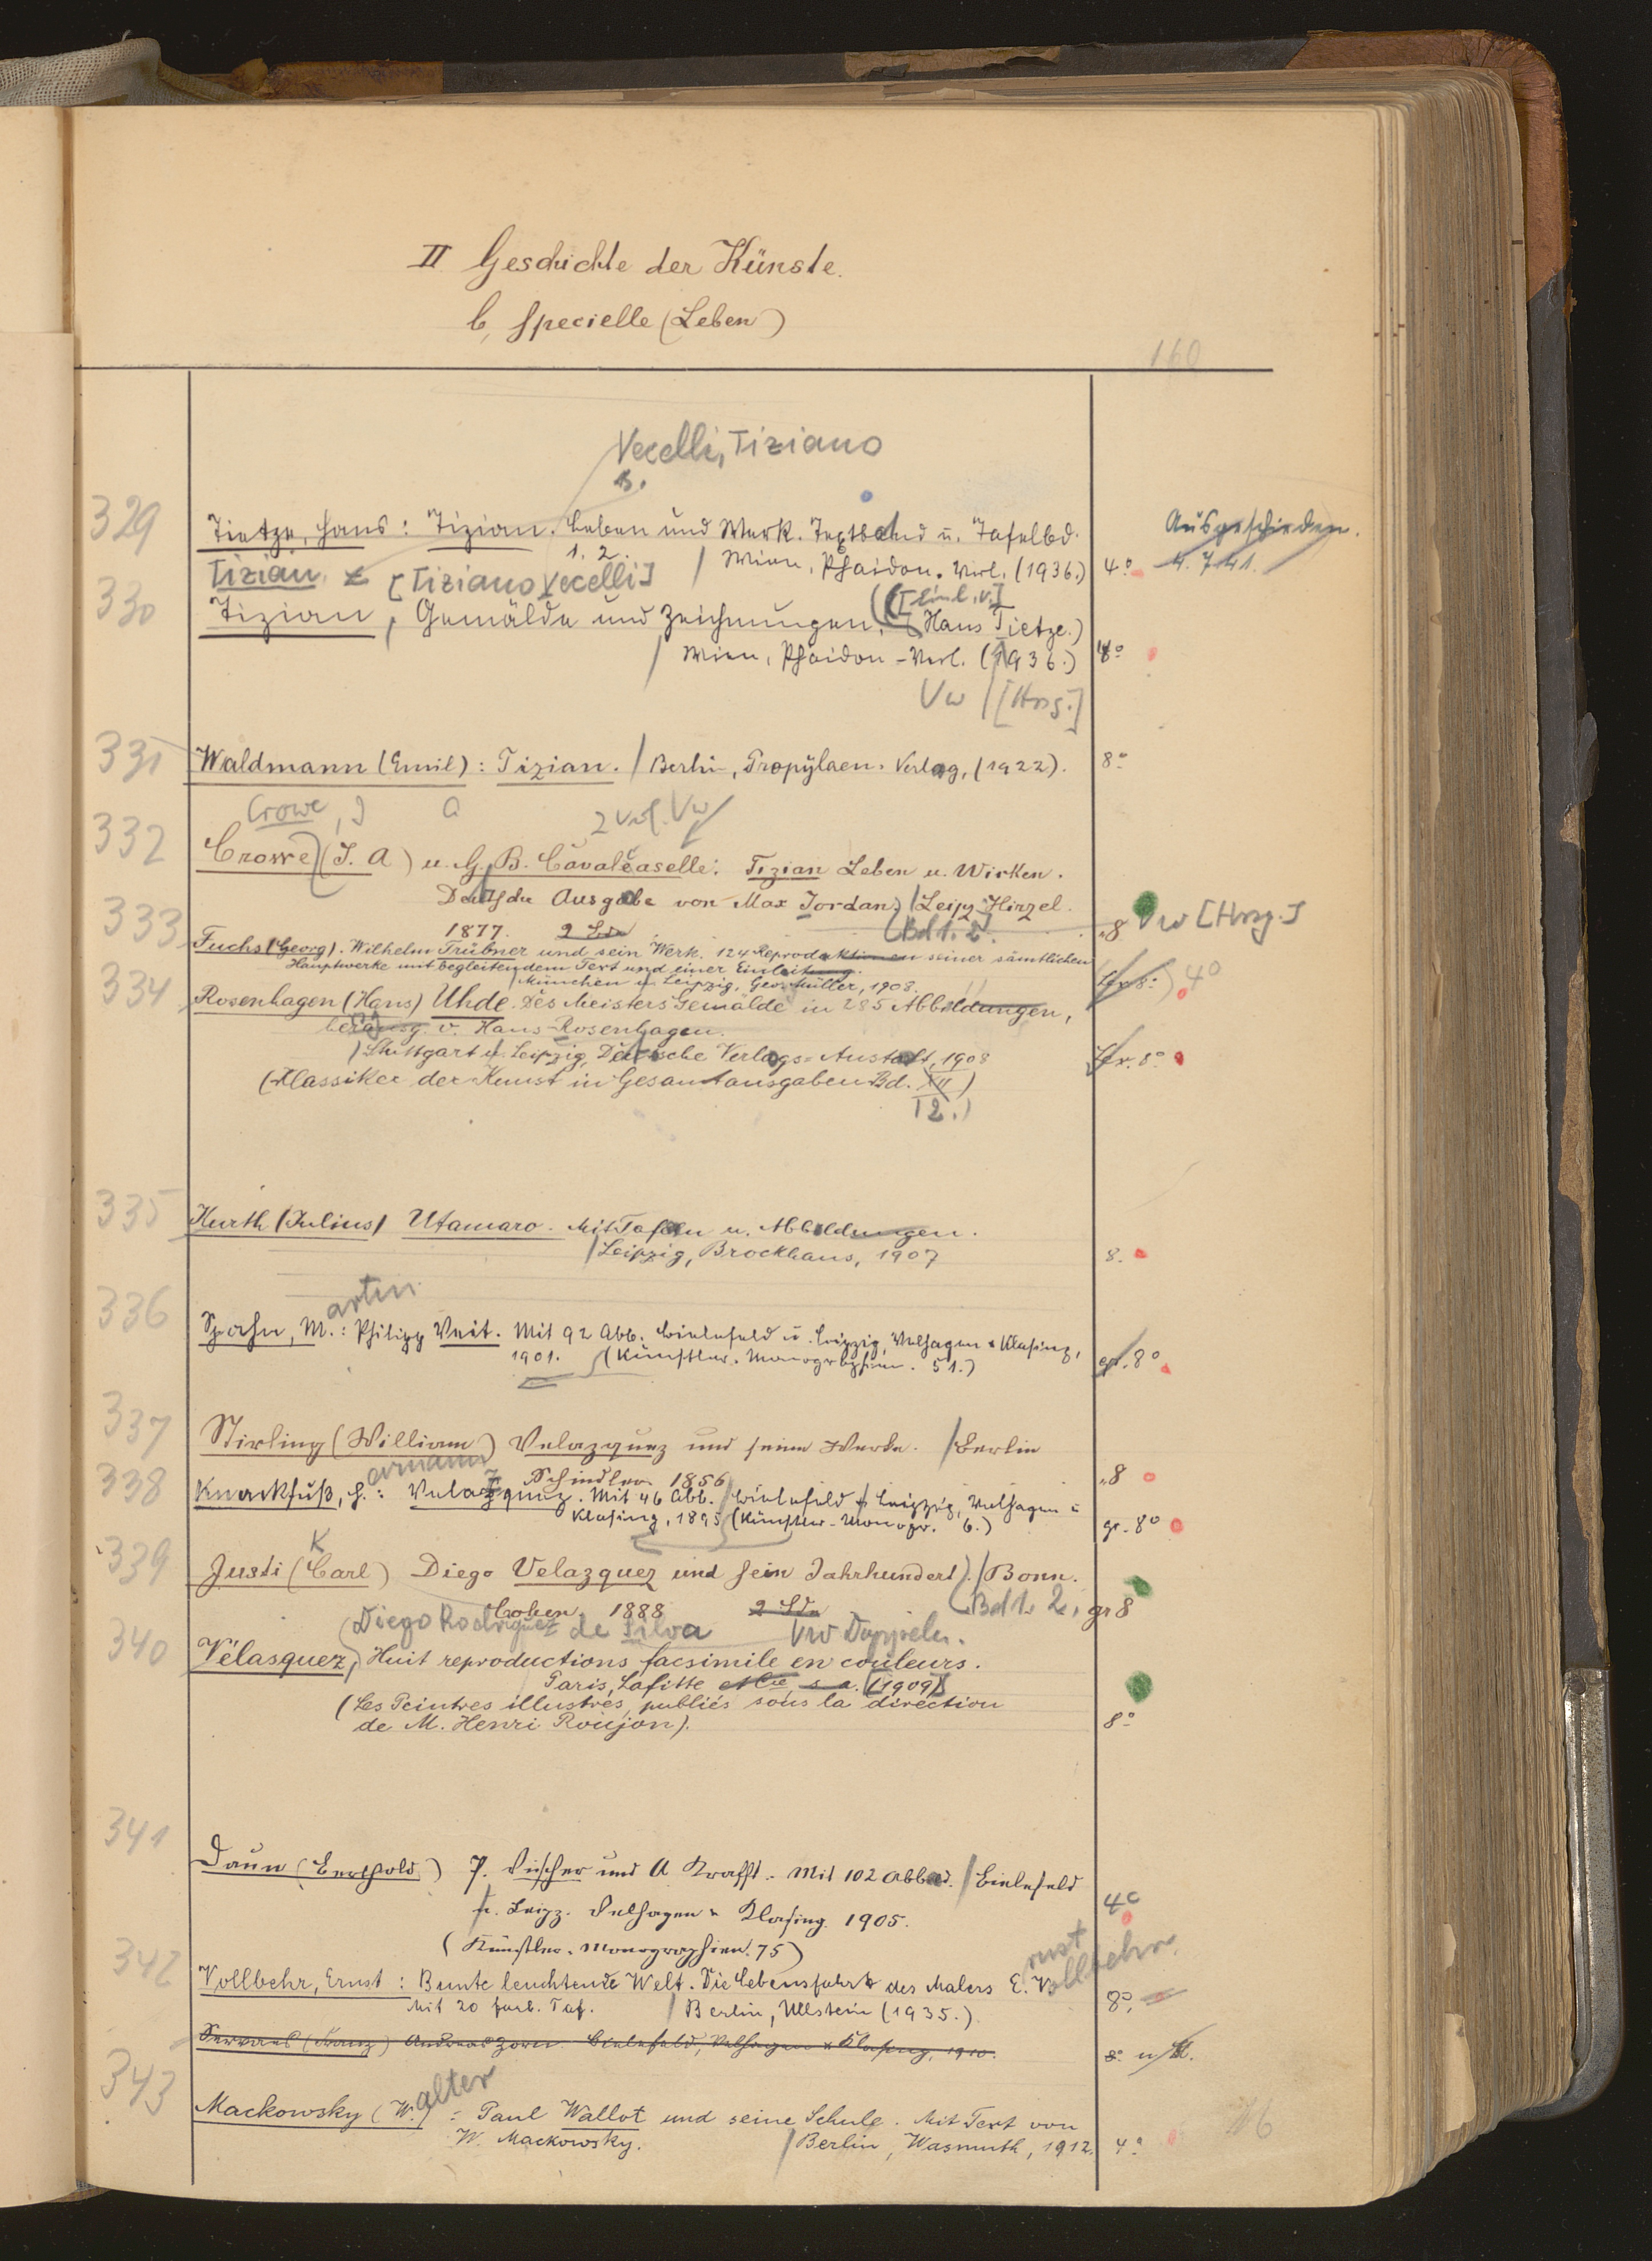 II Geschichte der Künste.
b, Specielle (Leben)
160
Vecelli, Tiziano
329
Tietze, Hans: Tizian. Leben und Werk. Textband u. Tafelbd.
Ausgeschieden.
1. 2. / Wien, Phaidon-Verl. (1936.) 4°
4. 7 41.
Tizian [Tiziano Vecelli]
([Einl. v.]
330 Tizian, Gemälde und Zeichnungen. (Hans Tietze.)
/ Wien, Phaidon-Verl. (1936.) 4°
Vw / [Hrsg.]
331 Waldmann (Emil): Tizian. / Berlin, Propyläen-Verlag, (1922). 8°
Crowe, J a 2 Vw
332 Crowe (J. A) u. G. B. Cavalcaselle: Tizian Leben u. Wirken.
Deutsche Ausgabe von Max Jordan / Leipz. Hirzel.
1877. 2 Bde (Bd 1. 2. 8 Vw [Hrsg.]
333 Fuchs (Georg). Wilhelm Trübner und sein Werk. 124 Reproduktionen seiner sämtlichen
Hauptwerke mit begleitendem Text und einer Einleitung.
/ München u. Leipzig, Georg Müller, 1908. gr 8° 4°
334 Rosenhagen (Hans) Uhde. Des Meisters Gemälde in 285 Abbildungen,
herausg. v. Hans Rosenhagen.
/ Stuttgart u. Leipzig, Deutsche Verlags-Anstalt, 1908 gr. 8°
(Klassiker der Kunst in Gesamtausgaben Bd. XII)
12.)
335 Kurth (Julius) Utamaro. Mit Tafeln u. Abbildungen.
/ Leipzig, Brockhaus, 1907 8.
artin
336 Spahn, M.: Philipp Veit. Mit 92 Abb. Bielefeld u. Leipzig, Velhagen & Klasing,
1901. (Künstler-Monographien. 51.) gr. 8°
337 Stirling (William) Velazquez und seine Werke. / Berlin
Schindler 1856 8
ermann
338 Knackfuß, H.: Velazquez. Mit 46 Abb. / Bielefeld & Leipzig, Velhagen u
Klasing, 1895 (Künstler-Monogr. 6.) gr. 8°
K
339 Justi (Carl) Diego Velazquez und sein Jahrhundert). / Bonn.
Cohen. 1888 2 Bde (Bd 1. 2. gr 8
(Diego Rodriguez de Silva Vw Doppeln.
340 Vélasquez, Huit reproductions facsimile en couleurs.
Paris, Lafitte & Cie s. a. [1909]
(Les Peintres illustres, publiés sous la direction
de M. Henri Roujon). 8°
341
Daun (Berthold) P. Vischer und A Krafft. Mit 102 Abb. / Bielefeld
u. Leipz. Velhagen & Klasing. 1905. 4°
(Künstler-Monographien. 75)
rnst ollbehr.
342 Vollbehr, Ernst: Bunte leuchtende Welt. Die Lebensfahrt des Malers E. V
Mit 20 farb. Taf. / Berlin, Ullstein (1935.) 8°
Servaes (Franz) Anders Zorn. Bielefeld, Velhagen & Klasing, 1910. 8°
alter
343 Mackowsky (W.) = Paul Wallot und seine Schule. Mit Text von
W. Mackowsky. / Berlin, Wasmuth, 1912. 4°